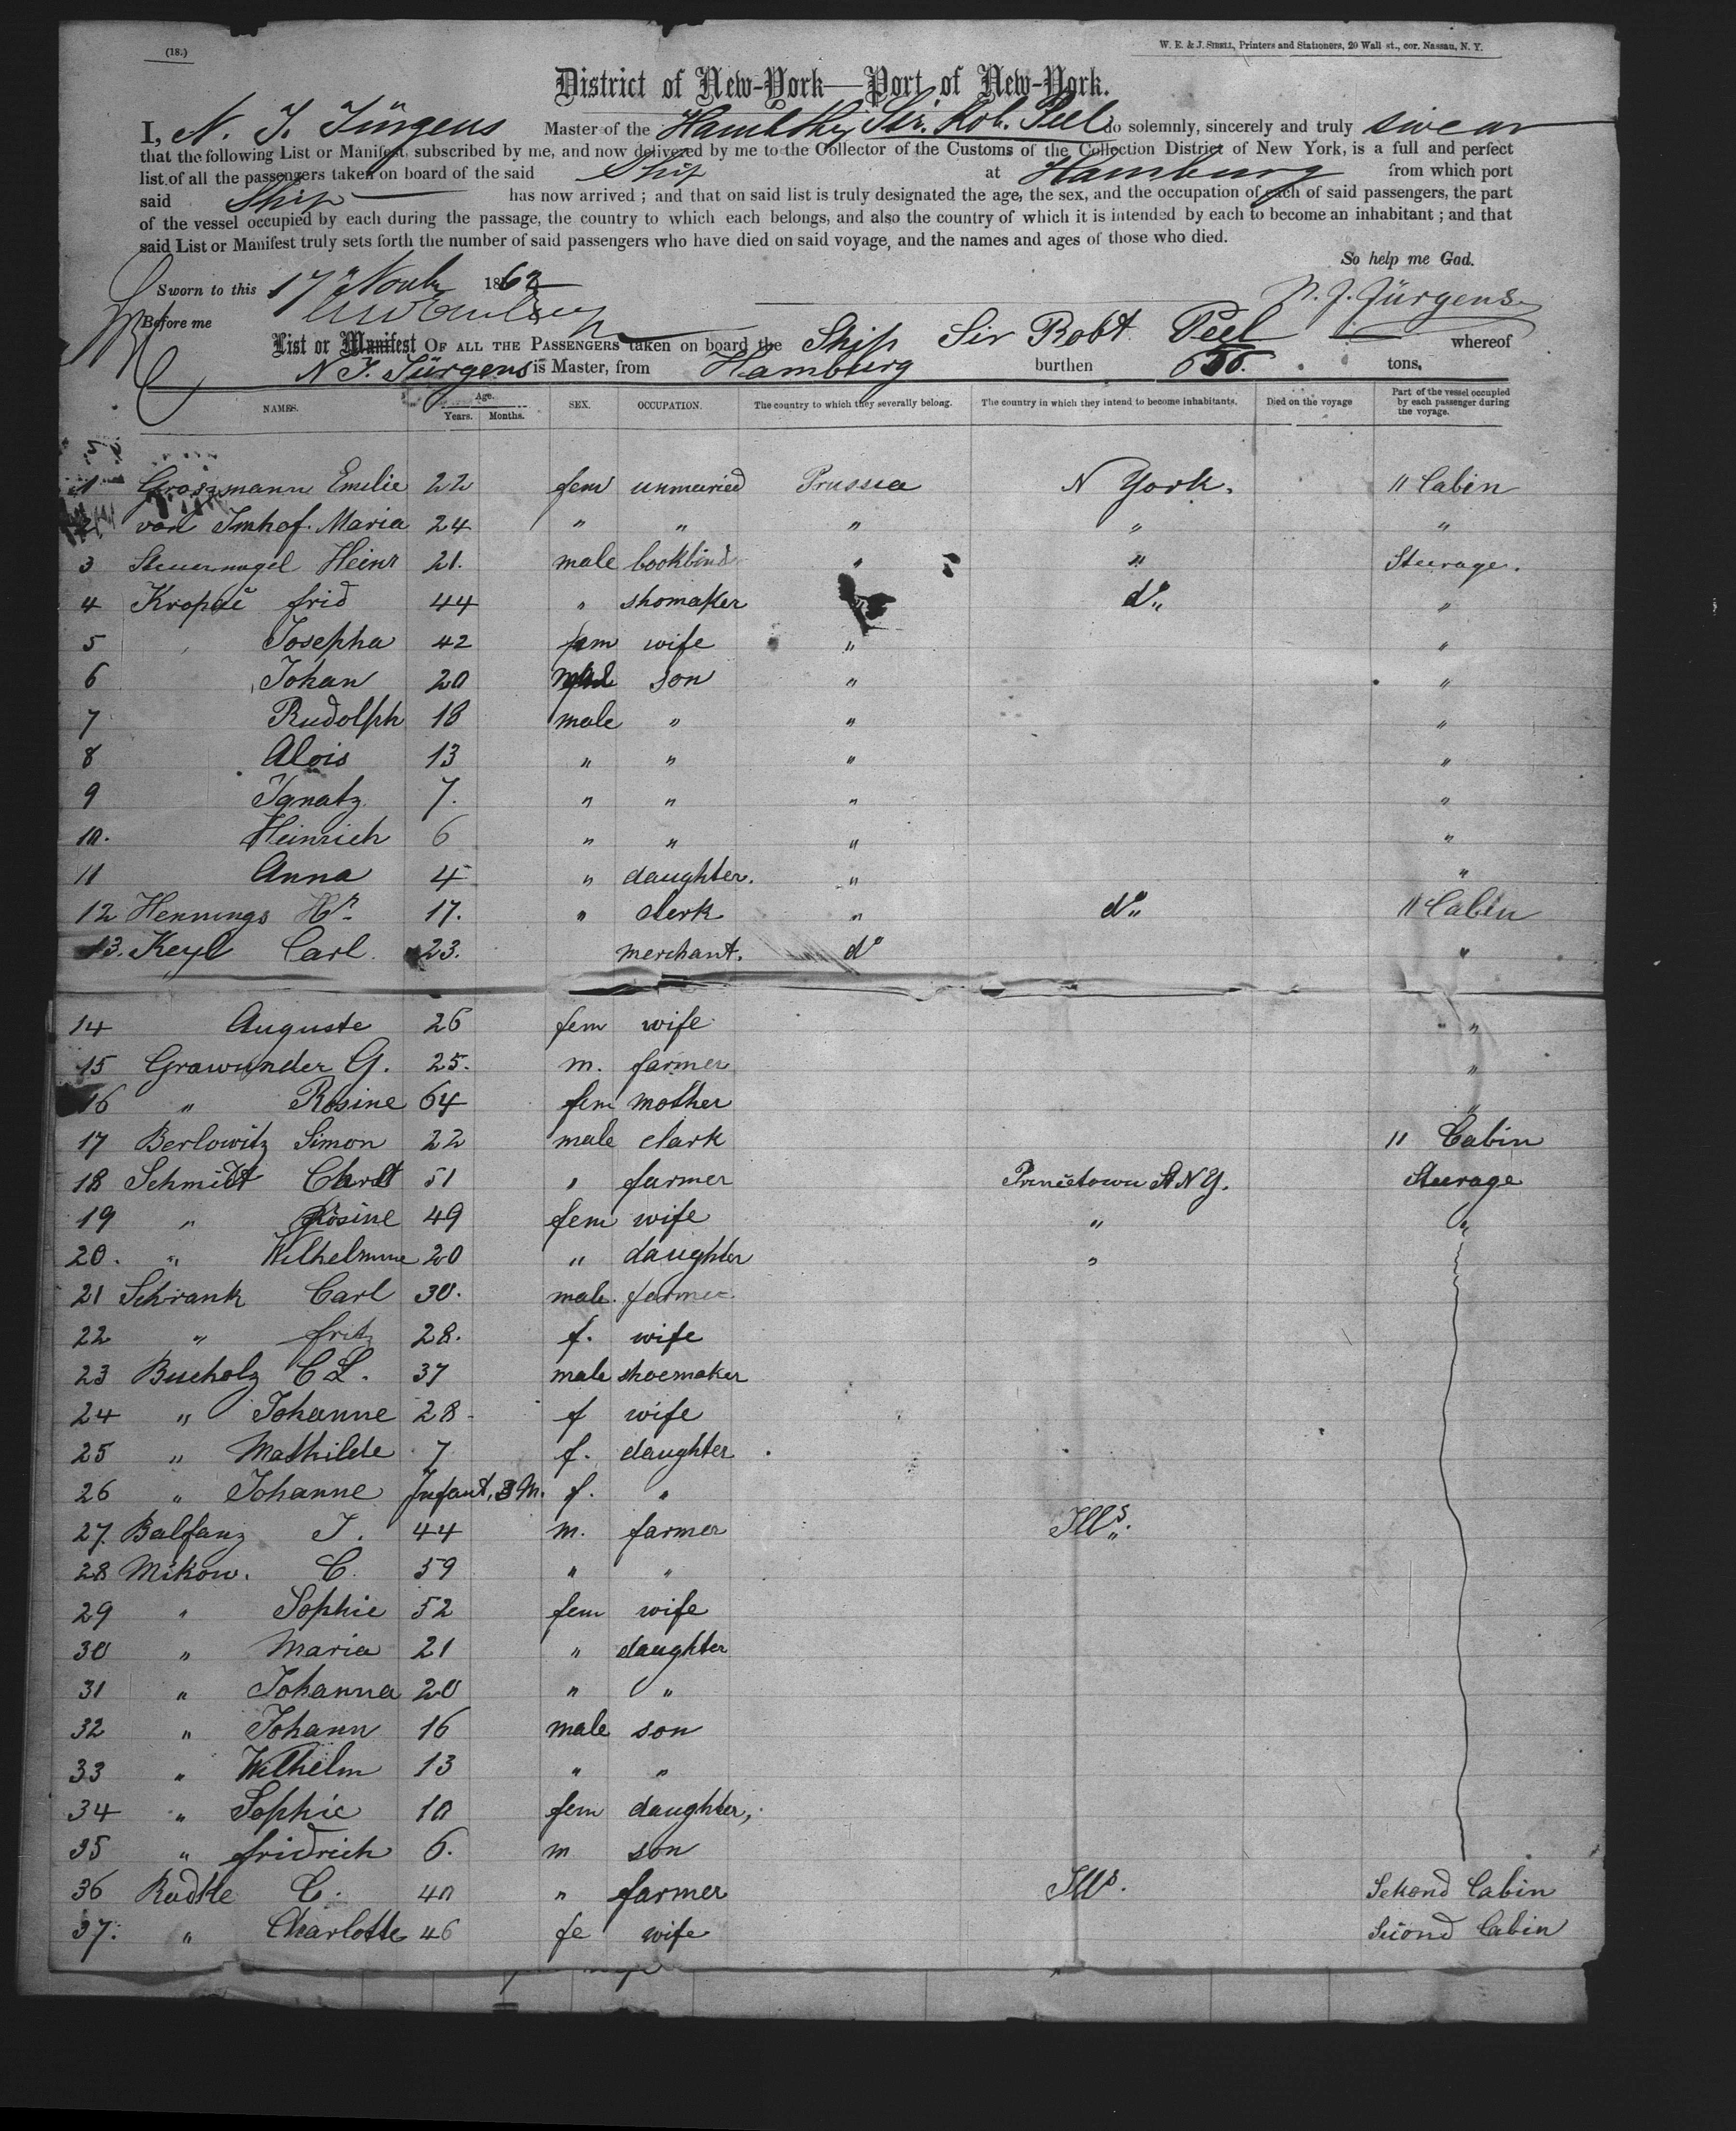 (18.)
W. E. & J. SIBELL, Printers and Stationers, 20 Wall st., cor. Nassau, N. Y.
District of New-York—Port of New-York.
I, N. J. Jürgens Master of the Sir. Rob. Peel do solemnly, sincerely and truly swear
that the following List or Manifest, subscribed by me, and now delivered by me to the Collector of the Customs of the Collection District of New York, is a full and perfect
list of all the passengers taken on board of the said Ship at Hamburg from which port
said Ship has now arrived ; and that on said list is truly designated the age, the sex, and the occupation of each of said passengers, the part
of the vessel occupied by each during the passage, the country to which each belongs, and also the country of which it is intended by each to become an inhabitant ; and that
said List or Manifest truly sets forth the number of said passengers who have died on said voyage, and the names and ages of those who died.
So help me God.
Sworn to this 17 Novb 1862
N. J. Jürgens
Before me
List or Manifest OF ALL THE PASSENGERS taken on board the Ship Sir Robt Peel whereof
N J. Jürgens is Master, from Hamburg burthen tons.
NAMES. Age. Years. Months. SEX. OCCUPATION. The country to which they severally belong. The country in which they intend to become inhabitants. Died on the voyage Part of the vessel occupied by each passenger during the voyage.
1 Groszmann Emelie 22 fem unmaried Prussia N York. " Cabin
2 von Imhof. Maria 24 " " " " "
3 Steuernagel Heinr 21. male bookbind " " Steerage.
4 frid 44 " shomaker " do "
5 Josepha 42 fem wife " "
6 Johan 20 male son " "
7 Rudolph 18 male " " "
8 Alois 13 " " " "
9 Ignatz 7. " " " "
10. Heinrich 6 " " " "
11 Anna 4 " daughter. " "
12 Hennings Hr 17. " clerk " do " Cabin
13. Keyl Carl. 23. merchant. do "
14 Auguste 26 fem wife "
15 Grawunder G. 25. m. farmer "
16 " Rosine 64 fem mother "
17 Berlowitz Simon 22 male clark " Cabin
18 Schmidt Christ 51 " farmer Princetown St NY. Steerage
19 " Rosine 49 fem wife " "
20. " Wilhelmine 20 " daughter "
21 Schrank Carl 30. male. farmer
22 " fritz 28. f. wife
23 Bucholz C L. 37 male shoemaker
24 " Johanne 28 f wife
25 " Mathilde 7 f. daughter
26 " Johanne Infant, 3 M. f. "
27. Balfanz J. 44 m. farmer Ills.
28 Mikow. C. 59 " "
29 " Sophie 52 fem wife
30 " Maria 21 " daughter
31 " Johanna 20 " "
32 " Johann 16 male son
33 " Wilhelm 13 " "
34 " Sophie 10 fem daughter,
35 " fridrich 6. m son
36 Radtke C. 40 " farmer Ills. Sekond Cabin
37. " Charlotte 46 fe wife Second Cabin